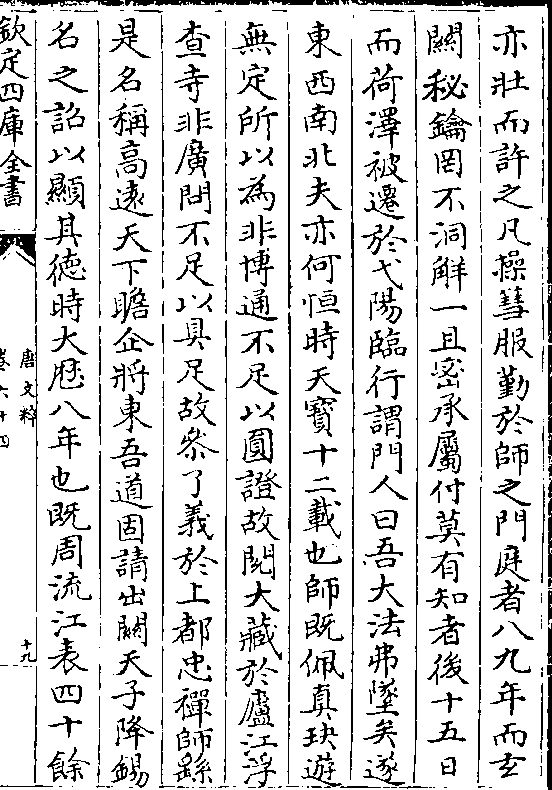 亦壯而許之凡操彗服勤於師之門庭者八九年而玄
關秘鑰罔不洞解一旦密承屬付莫有知者後十五日
而荷澤被遷於弋陽臨行謂門人曰吾大法弗墜矣遂
東西南北夫亦何恒時天寶十二載也師既佩真玦遊
無定所以為非博通不足以圓證故閱大藏於廬江浮
查寺非廣問不足以具足故叅了義於上都忠禪師繇
是名稱高遠天下瞻企將東吾道固請出關天子降錫
名之詔以顯其德時大厯八年也既周流江表四十餘
欽定四庫全書
唐文粹
卷六十四
十九